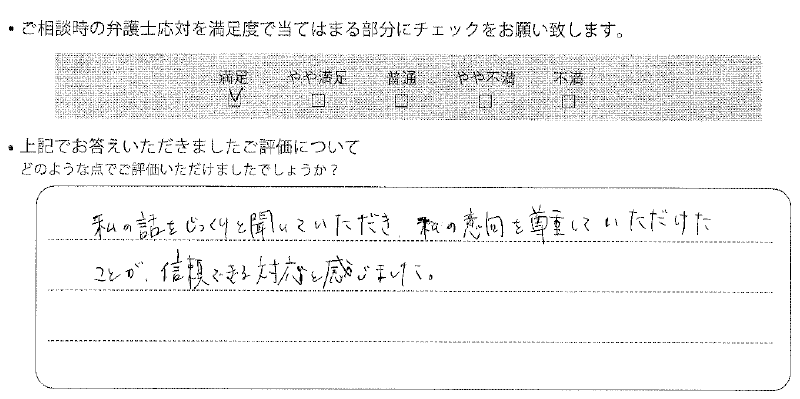 ・ご相談時の弁護士応対を満足度で当てはまる部分にチェックをお願い致します。
満足 やや満足 普通 やや不満 不満
・上記でお答えいただきましたご評価について
どのような点でご評価いただけましたでしょうか？
私の話をじっくりと聞いていただき、私の意向を尊重していただけた
ことが、信頼できる対応と感じました。